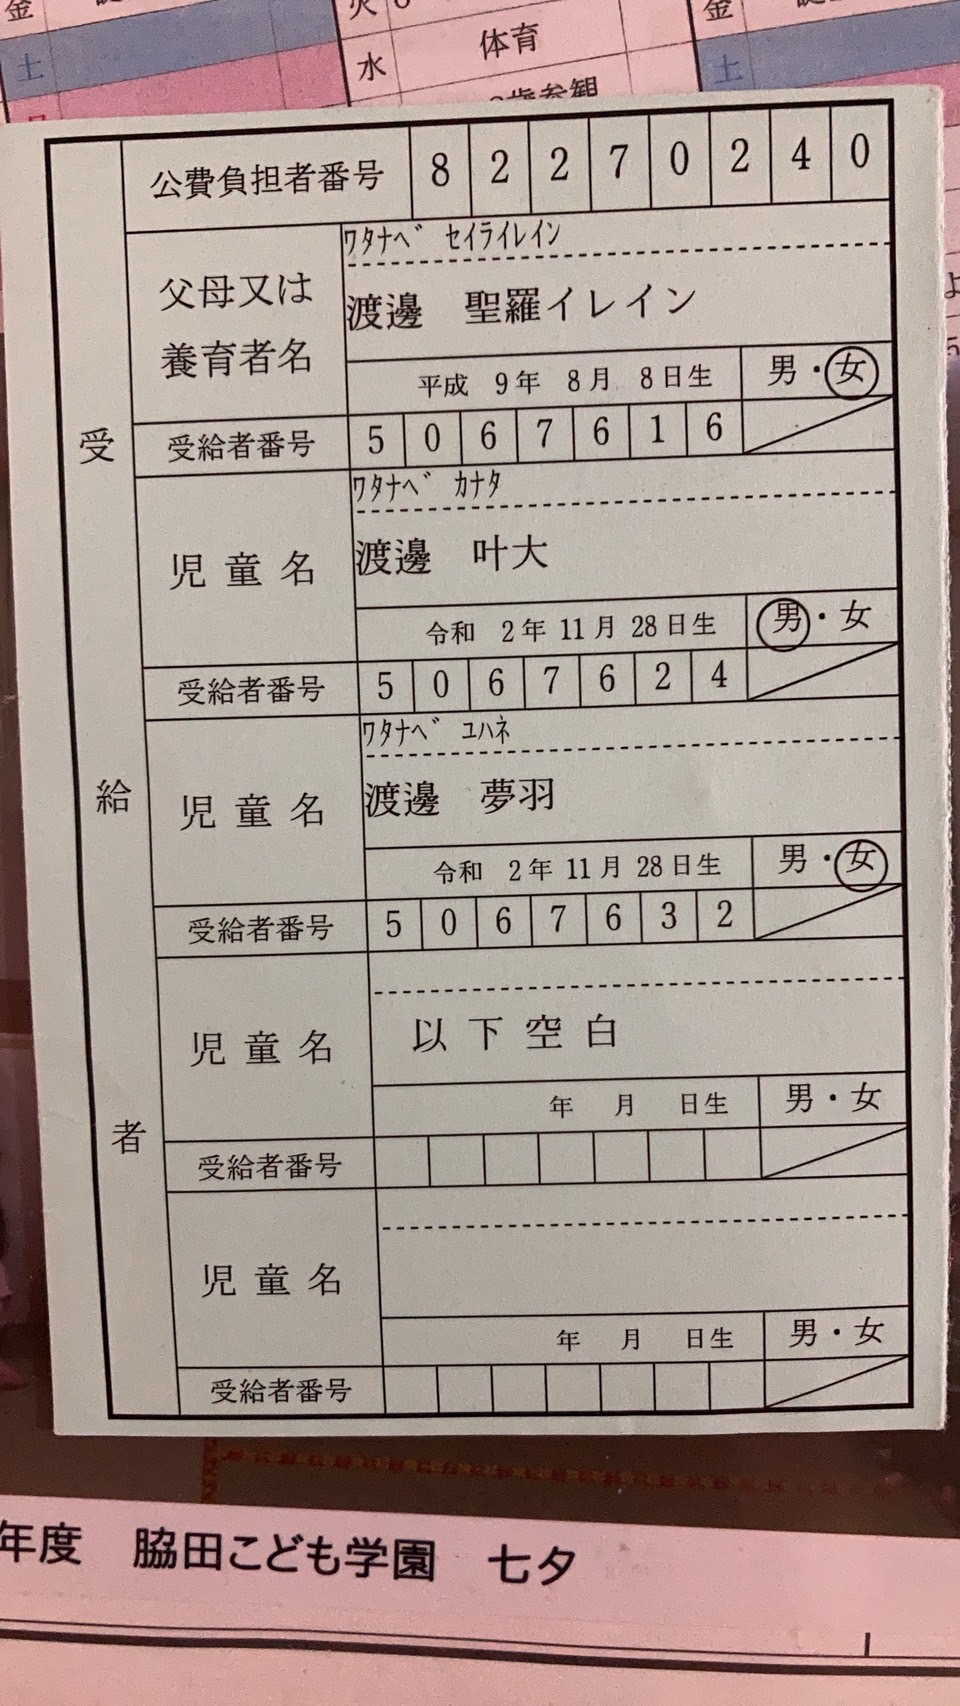 金
火
金
土
水 体育
土
歳参観
公費負担者番号 8 2 2 7 0 2 4 0
受給者
父母又は養育者名
ワタナベ セイライレイン
渡邊 聖羅イレイン
平成 9年 8月 8日生 男・女
受給者番号 5 0 6 7 6 1 6
ワタナベ カナタ
児童名 渡邊 叶大
令和 2年 11月 28日生 男・女
受給者番号 5 0 6 7 6 2 4
ワタナベ ユハネ
児童名 渡邊 夢羽
令和 2年 11月 28日生 男・女
受給者番号 5 0 6 7 6 3 2
児童名 以下空白
年 月 日生 男・女
受給者番号
児童名
年 月 日生 男・女
受給者番号
年度 脇田こども学園 七夕